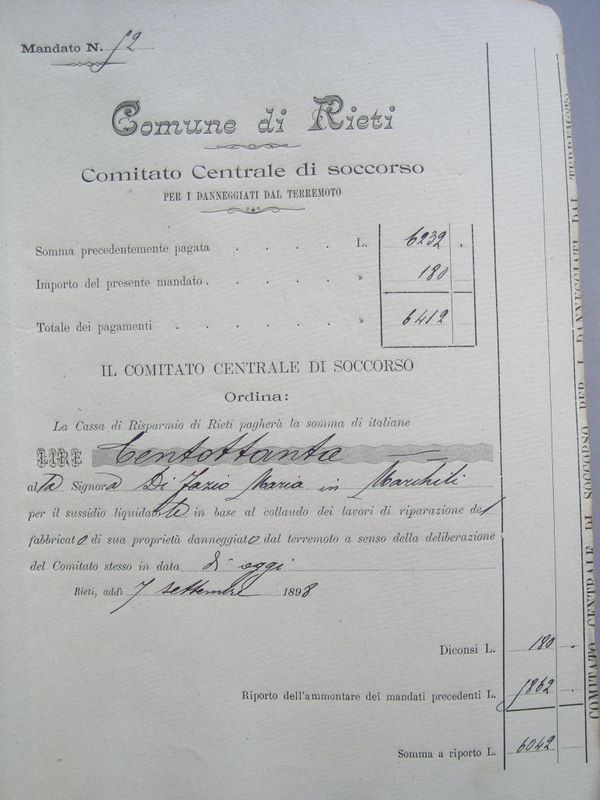 Mandato N. 52
Comune di Rieti
Comitato Centrale di soccorso
PER I DANNEGGIATI DAL TERREMOTO
Somma precedentemente pagata . . . . L. 6232 .
Importo del presente mandato . . . . . » 180
Totale dei pagamenti . . . . . . » 6412
IL COMITATO CENTRALE DI SOCCORSO
Ordina:
La Cassa di Risparmio di Rieti pagherà la somma di italiane
LIRE Centottanta
alla Signora Di Fazio Maria in Marchili
per il sussidio liquidatole in base al collaudo dei lavori di riparazione del
fabbricato di sua proprietà danneggiato dal terremoto a senso della deliberazione
del Comitato stesso in data di oggi
Rieti, addì 7 settembre 1898
Diconsi L. 180 .
Riporto dell'ammontare dei mandati precedenti L. 5862 .
Somma a riporto L. 6042
COMITATO CENTRALE DI SOCCORSO PER I DANNEGGIATI DAL TERREMOTO